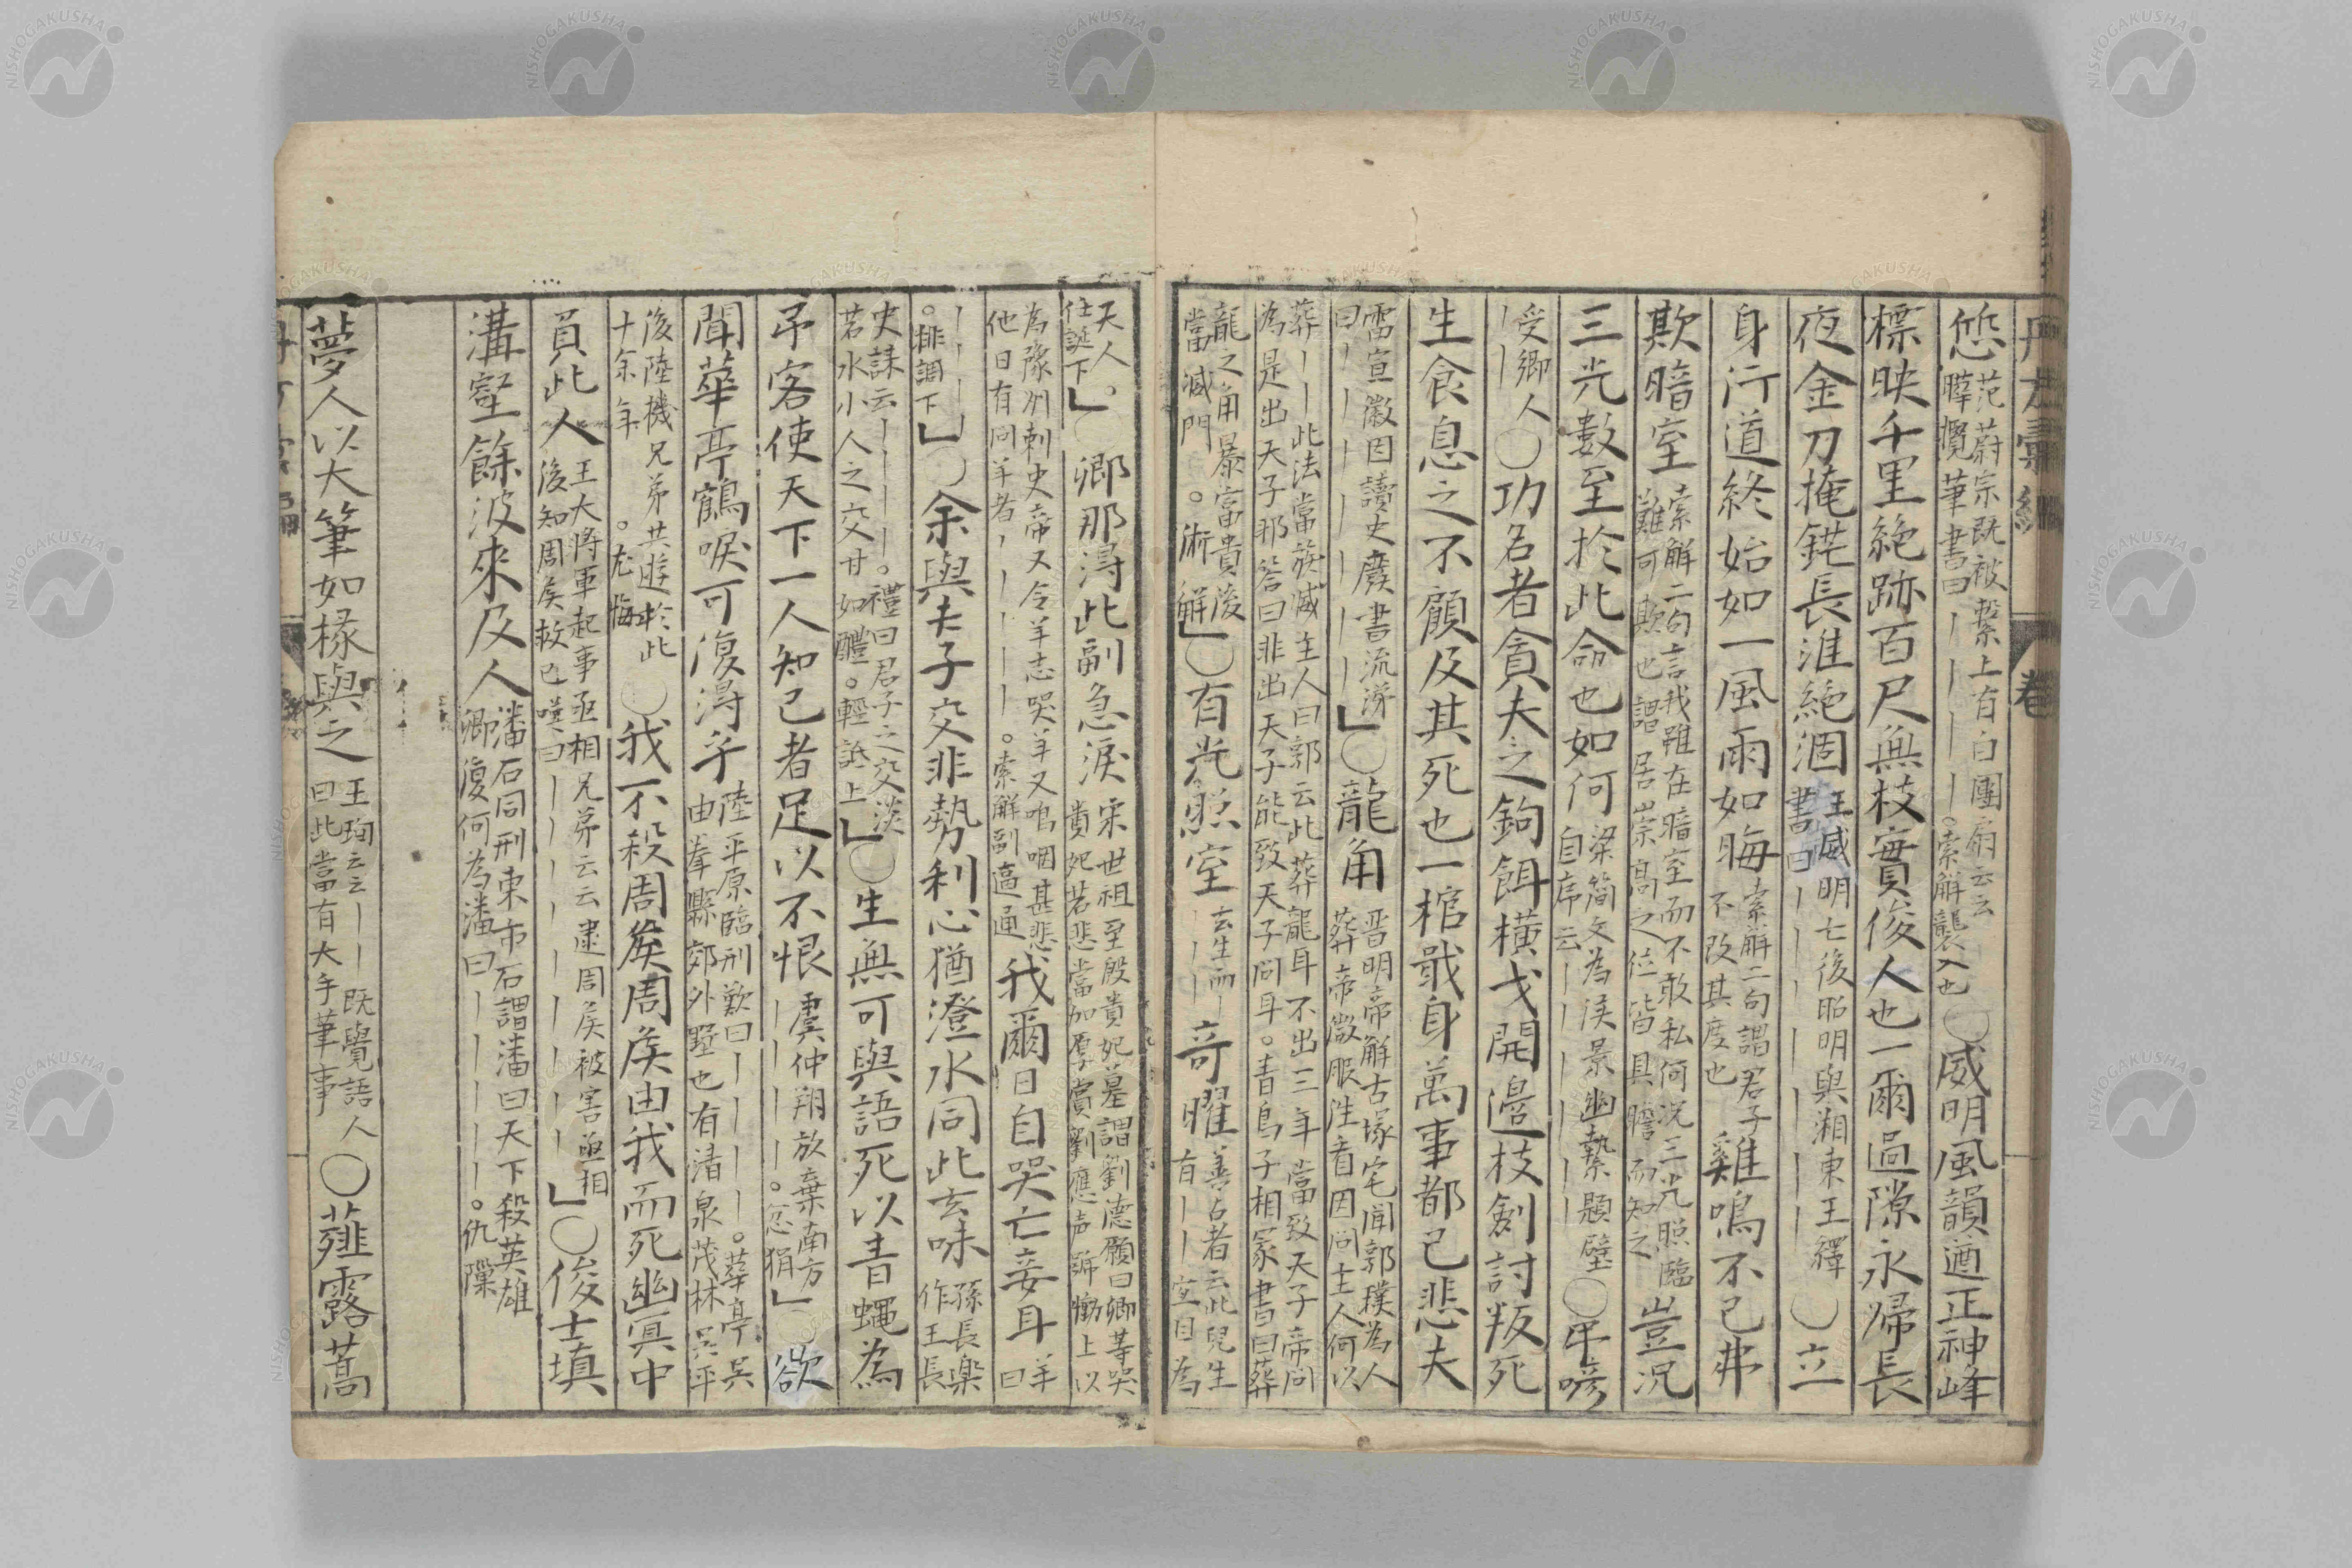 恷 范蔚宗既被繋上有白團扇云云
曄攬筆書曰｜｜｜｜｜。索解襲入也 〇威明風韻遒正神峰
標映千里絶跡百尺無枝實俊人也一爾過隙永帰長
夜金刀掩鋩長淮絶涸 王威明亡後昭明與湘東王繹
書曰｜｜｜｜｜｜ 〇立
身行道終始如一風雨如晦 索解二句謂君子
不改其度也 雞鳴不已弗
欺暗室 索解二句言我雖在暗室而不敢私何况三光照臨
難可欺也謂居崇高之位皆具瞻而知之 豈况
三光數至於此命也如何 梁簡文為侯景幽縶題壁
自序云｜｜｜｜｜｜ 〇牟嗲
受卿人
｜｜ 〇功名者貪夫之鉤餌横戈開邉枝劍討叛死
生食息之不顧及其死也一棺戢身萬事都已悲夫
雷宣徽因讀史廢書流涕
曰｜｜｜｜｜｜｜ 」〇龍角 晋明帝解古塚宅聞郭璞為人
葬帝微服往看因問主人何以
葬｜｜此法當族滅主人曰郭云此葬龍耳不出三年當致天子帝問
為是出天子耶答曰非出天子能致天子問耳。青烏子相冢書曰葬
龍之角暴富貴後
當滅門 。術解」〇有光照室 玄生而｜
｜｜｜ 奇曜 善占者云此兒生
有｜｜室目為
天人。
任誕下」〇卿那得此副急淚 宋世祖至殷貴妃墓謂劉德願曰卿等哭
貴妃若悲當加厚賞劉應声號慟上以
為豫州刺史帝又令羊志哭羊又嗚咽甚悲
他日有问羊者｜｜｜｜｜。索解副遍通 我爾日自哭亡妾耳 羊
曰
｜｜｜｜
。排調下」〇余與夫子交非勢利心猶澄水同此玄味 孫長楽
作王長
史誄云｜｜｜｜｜。禮曰君子之交淡
若水小人之交甘如醴。輕詆上」〇生無可與語死以青蝿為
弔客使天下一人知已者足以不恨 虞仲翔放棄南方
｜｜｜｜｜。忿狷」〇欲
聞華亭鶴唳可復得乎 陸平原臨刑歎曰｜｜｜｜。華亭吳
由拳縣郊外墅也有清泉茂林吳平
後陸機兄弟共遊於此
十余年 。尤悔 〇我不殺周矦周矦由我而死幽冥中
負此人 王大將軍起事丞相兄弟云云逮周矦被害丞相
後知周矦救已嘆曰｜｜｜｜｜｜｜ 」〇俊士填
溝壑餘波來及人 潘石同刑東市石謂潘曰天下殺英雄
卿復何為潘曰｜｜｜｜｜。仇隟
夢人以大筆如椽與之 王珣云云｜｜既覺語人
曰此當有大手筆事 〇薤露蒿